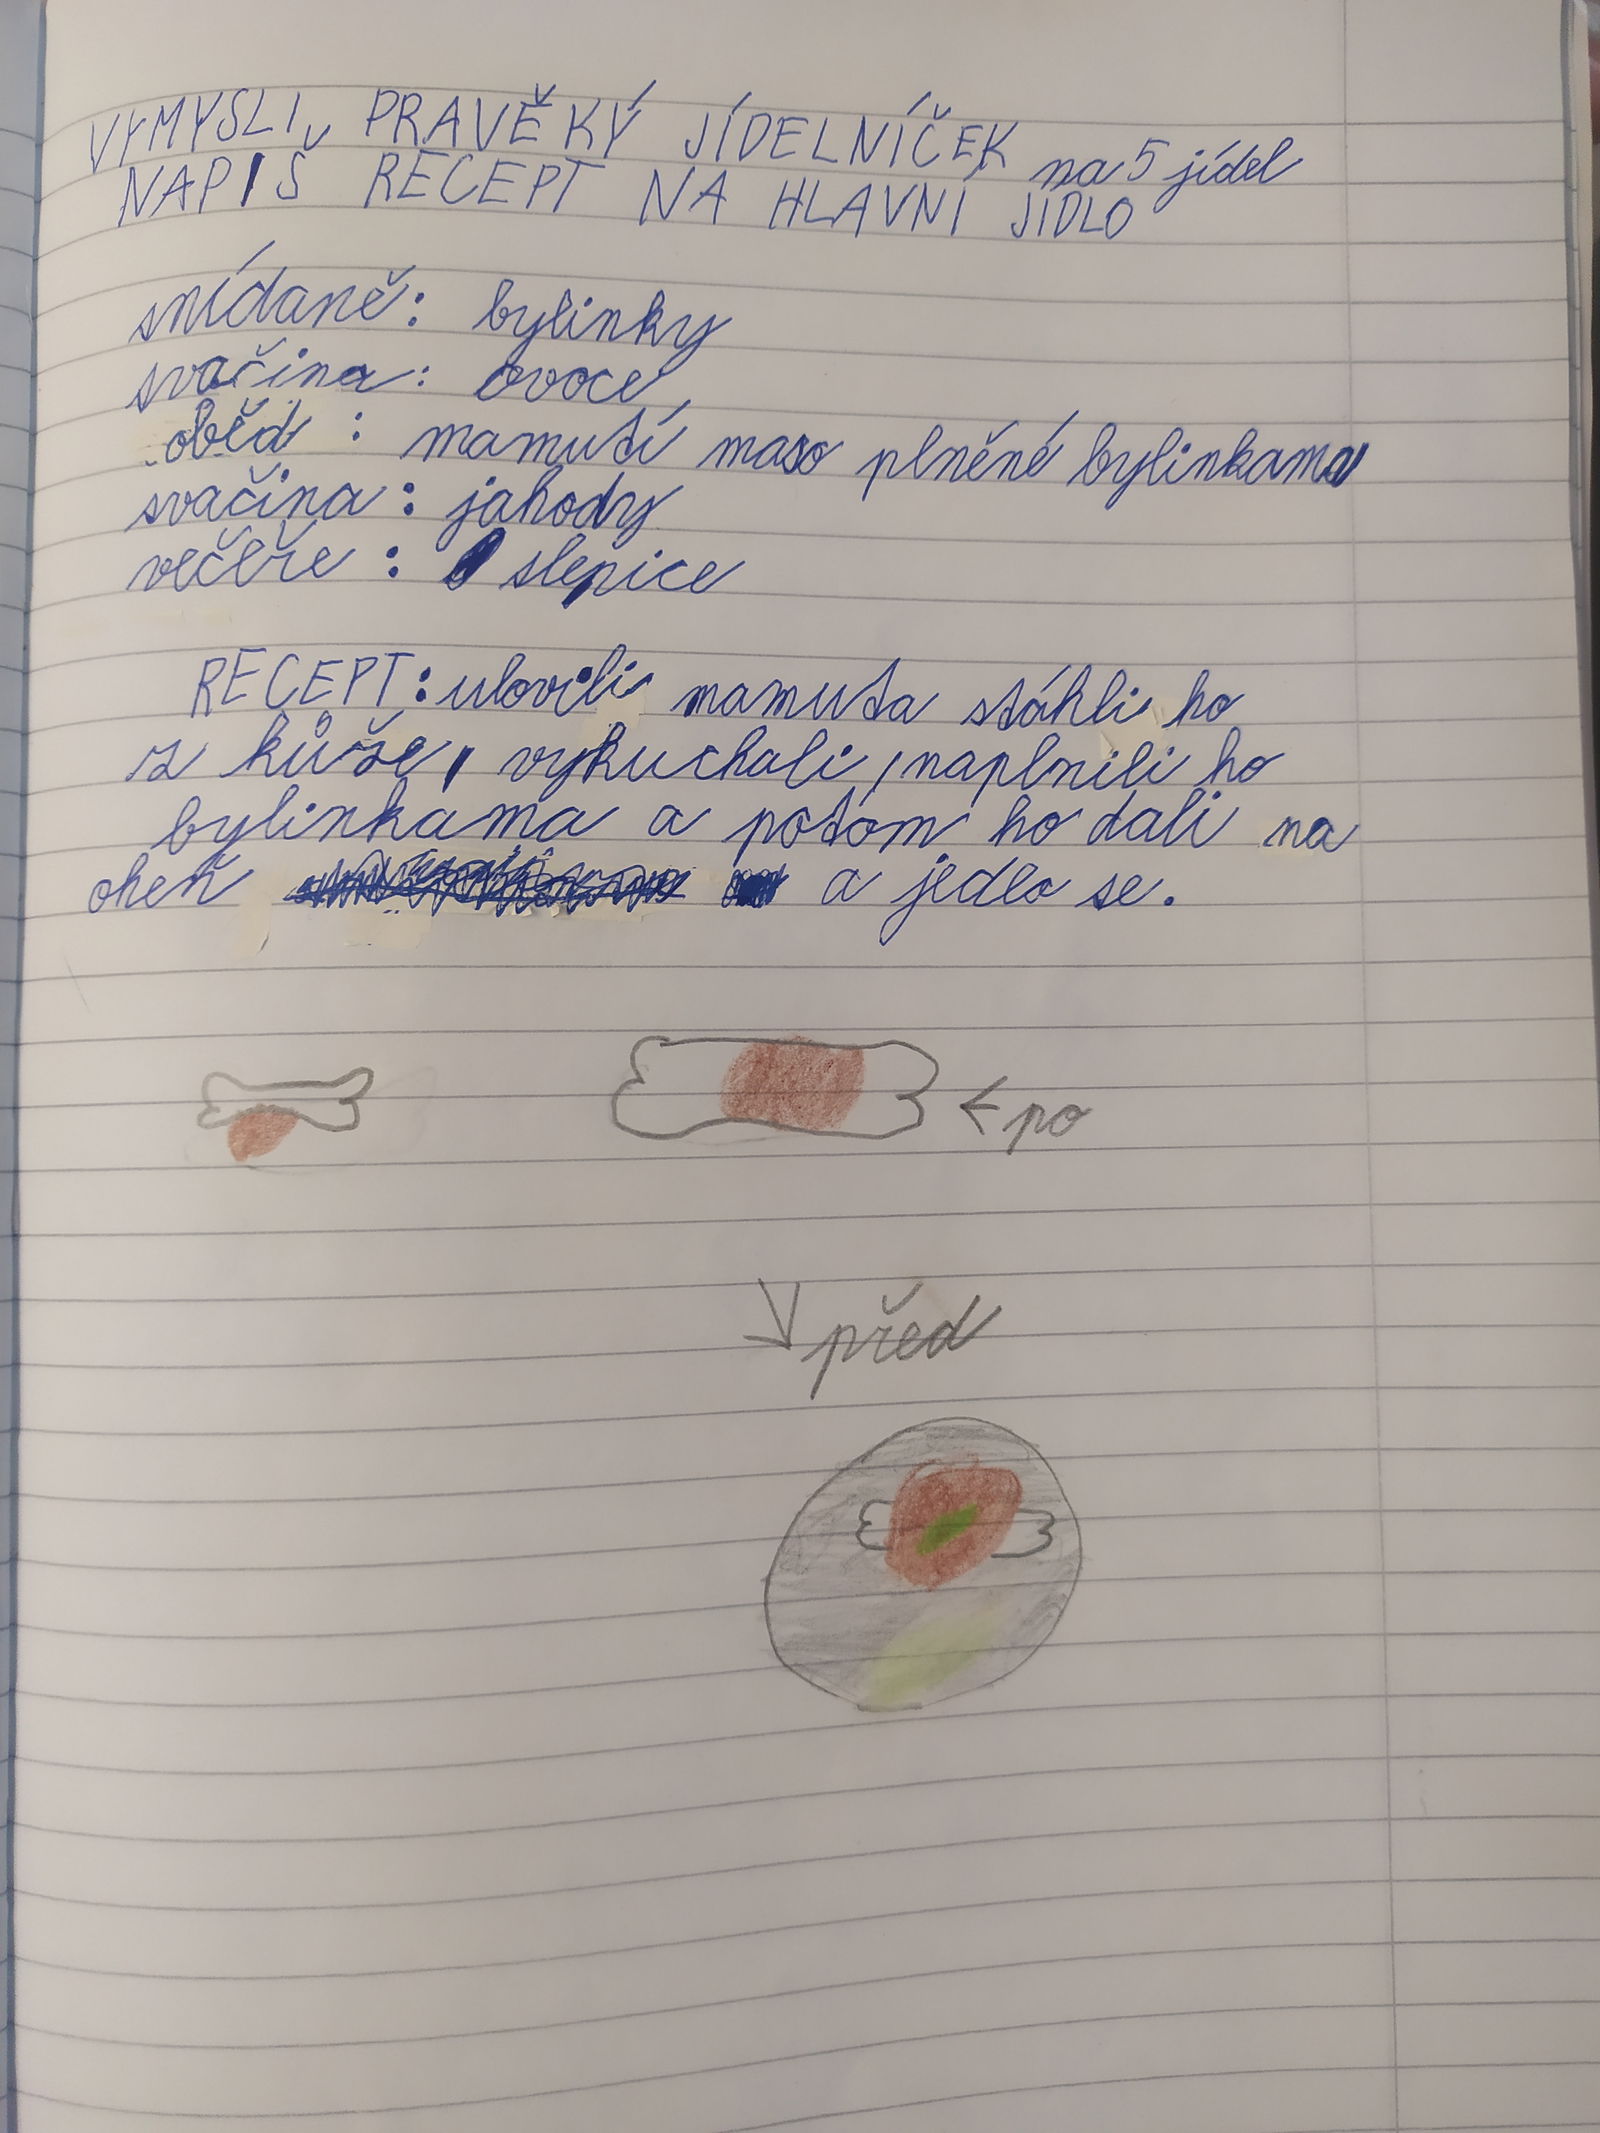 VYMYSLI, PRAVĚKÝ JÍDELNÍČEK na 5 jídel
NAPIŠ RECEPT NA HLAVNÍ JÍDLO
snídaně: bylinky
svačina: ovoce
oběd : mamutí maso plněné bylinkama
svačina: jahody
večeře : slepice
RECEPT: ulovili mamuta stáhli ho
z kůže, vykuchali, naplnili ho
bylinkama a potom ho dali na
oheň a jedlo se.
←po
↓před